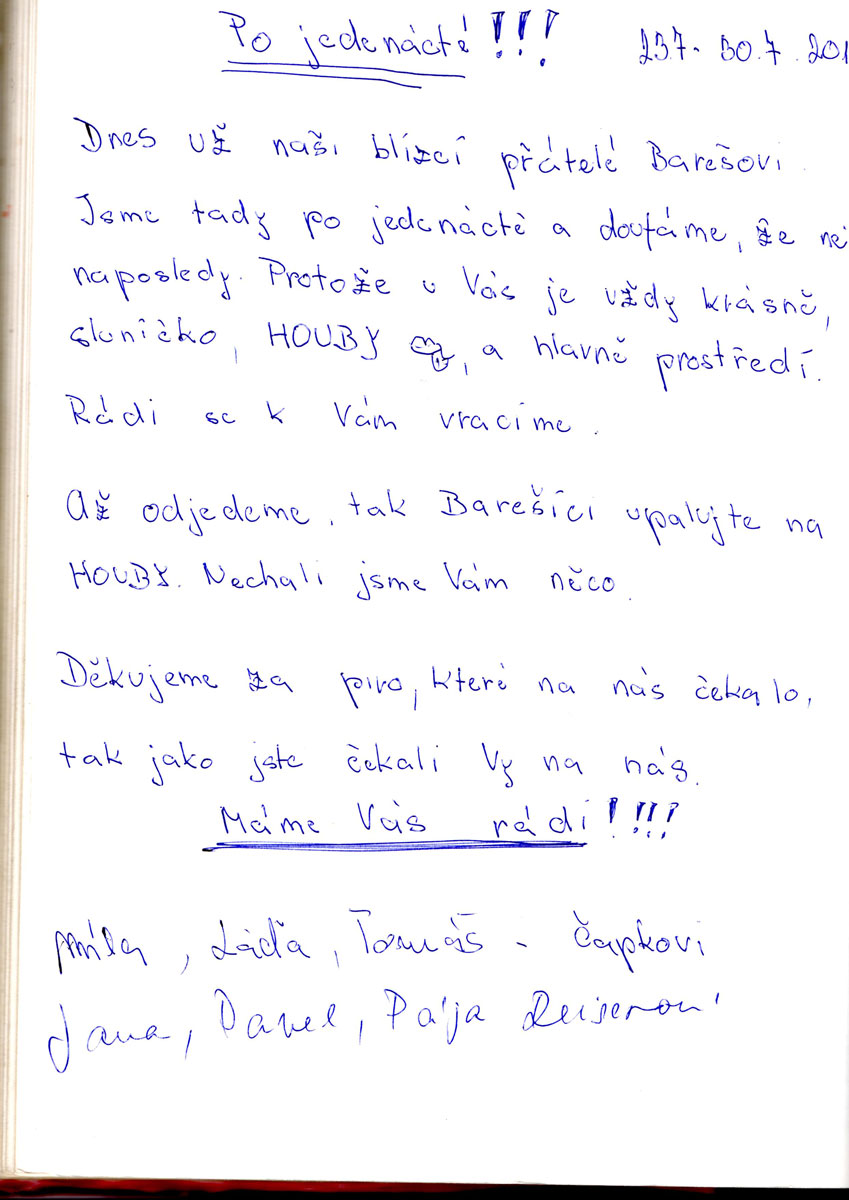 Po jedenácté !!!
23.7. - 30.7. 201
Dnes už naši blízcí přátelé Barešovi.
Jsme tady po jedenácté a doufáme, že ne
naposledy. Protože u Vás je vždy krásně,
sluníčko, HOUBY, a hlavně prostředí.
Rádi se k Vám vracíme.
Až odjedeme, tak Barešíci upalujte na
HOUBY. Nechali jsme Vám něco.
Děkujeme za pivo, které na nás čekalo,
tak jako jste čekali Vy na nás.
Máme Vás rádi!!!!
Míla, Láďa, Tomáš - Čapkovi
Jana, Pavel, Pája